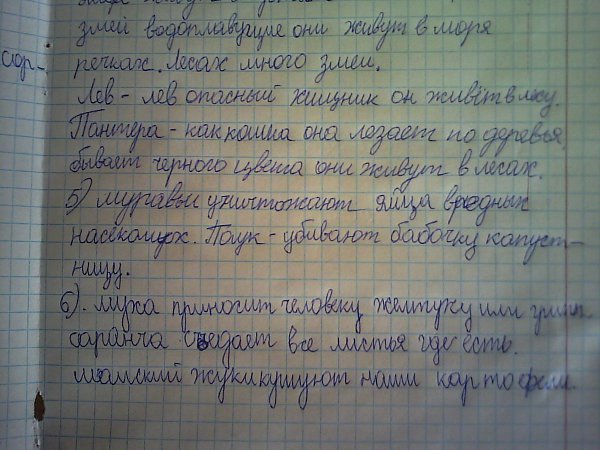 змей водоплавущие они живут в моря
стор-
речках. Лесах много змеи.
Лев - лев опасный хищник он живёт в лесу.
Пантера - как кошка она лазает по деревья,
бывает черного цвета они живут в лесах.
5) муравьи уничтожают яйца вредных
насекомых. Паук - убивают бабочку капуст-
ницу.
6). муха приносит человеку желтуху или грипп
саранча съедает все листья где есть.
жуки кушуют наши картофели.